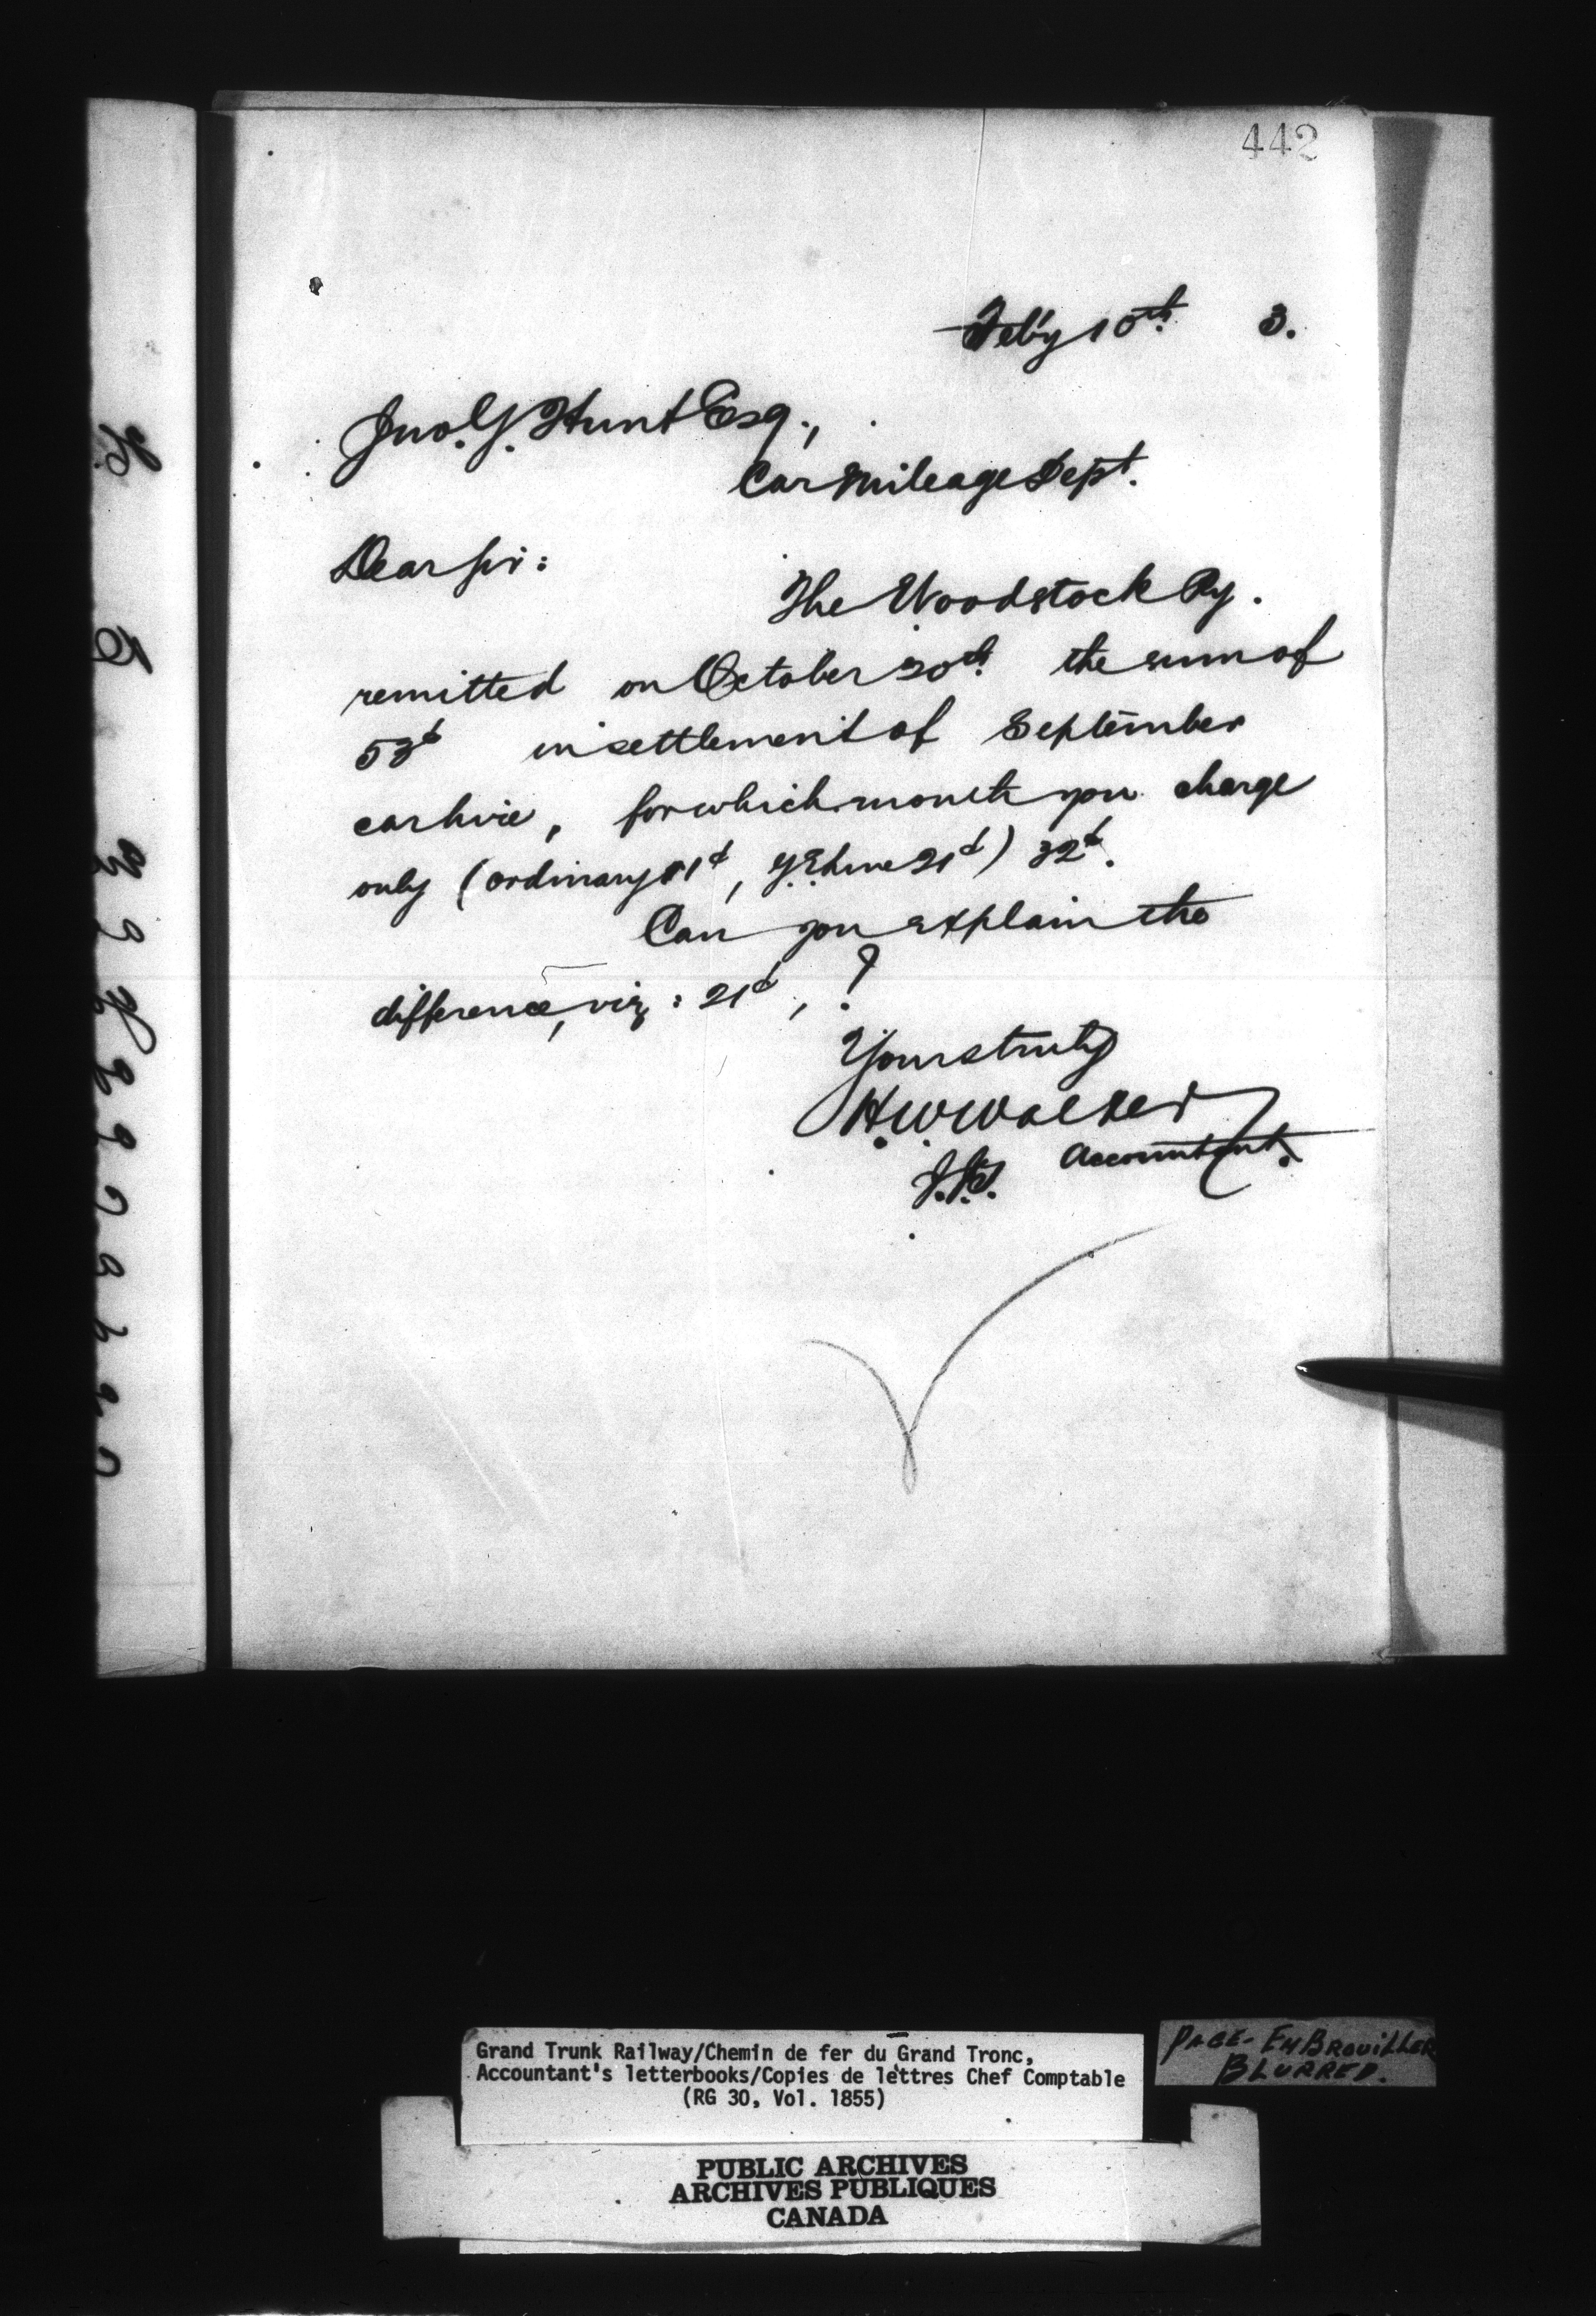 442
Feb'y 10th 3.
Jno. Y. Hunt Esq.,
Car Mileage Dept.
Dear Sir:
The Woodstock Ry.
remitted on October 30th the sum of
53¢ in settlement of September
car hire, for which month you charge
only (ordinary 11¢, 21¢) 32¢.
Can you explain the
difference, viz: 21¢, ?
Yours truly
H. W. Walker
Accountant.
Grand Trunk Railway/Chemin de fer du Grand Tronc,
Accountant's letterbooks/Copies de lettres Chef Comptable
(RG 30, Vol. 1855)
PAGE - EMBROUILLER
BLURRED.
PUBLIC ARCHIVES
ARCHIVES PUBLIQUES
CANADA